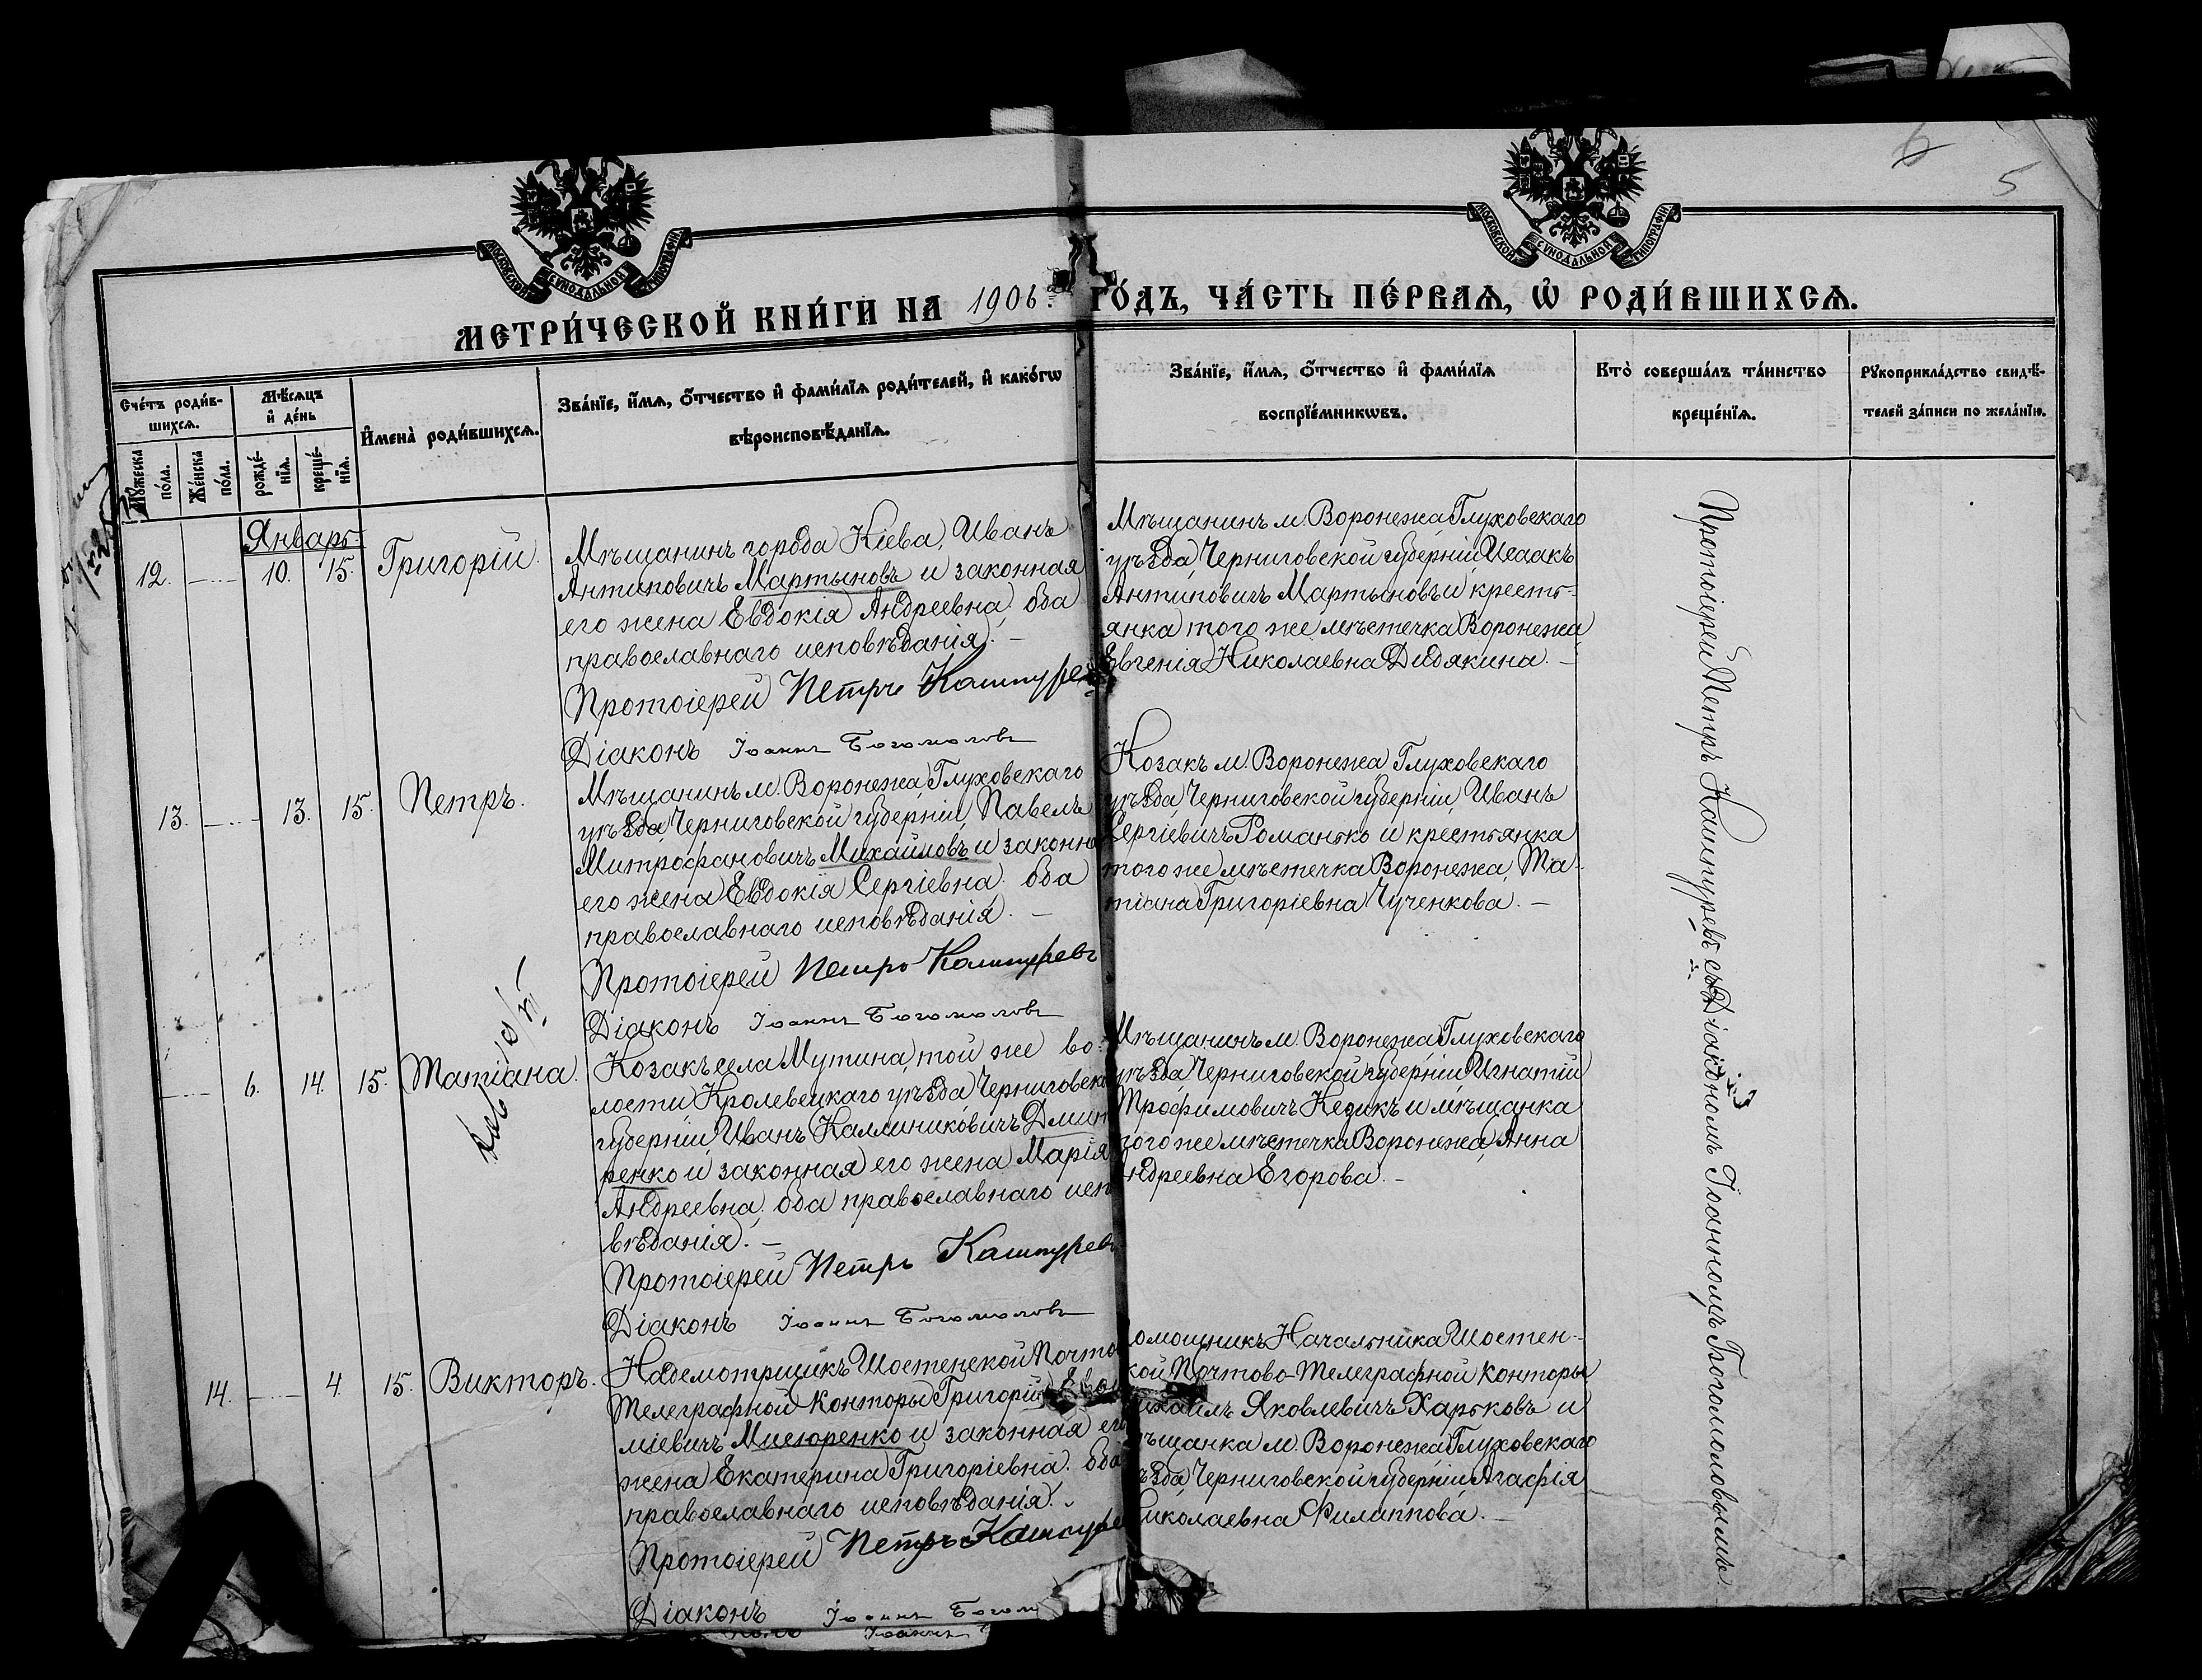 6
5
МОСКОВСКОЙ СѴНОДАЛЬНОЙ ТИПОГРАФІИ
МОСКОВСКОЙ СѴНОДАЛЬНОЙ ТИПОГРАФІИ
МЕТРИ́ЧЕСКОЙ КНИ́ГИ НА 1906 ГО́ДЪ, ЧА́СТЬ ПЕ́РВАѦ, Ѡ҆ РОДИ́ВШИХСѦ.
Сче́тъ роди́в-
шихсѧ.
Мѣ́сѧцъ
и҆ де́нь
И҆мена̀ роди́вшихсѧ.
Зва́нїе, и҆́мѧ, ѻ҆́тчество и҆ фами́лїѧ роди́телей, и҆ како́гѡ
вѣроисповѣ́данїѧ.
Зва́нїе, и҆́мѧ, ѻ҆́тчество и҆ фами́лїѧ
воспрїе́мникѡвъ.
Кто̀ соверша́лъ та́инство
креще́нїѧ.
Рꙋкоприкла́дство свидѣ́-
телей за́писи по жела́нїю.
Мꙋ́жеска
по́ла.
Же́нска
по́ла.
рожде́-
нїѧ.
креще́-
нїѧ.
Январь.
12.
10.
15.
Григорій.
Мѣщанинъ города Кіева, Иванъ
Антиповичъ Мартыновъ и законная
его жена Евдокія Андреевна, оба
православнаго исповѣданія. –
Протоіерей Петръ Кашпуревъ
Діаконъ Іоаннъ Богомоловъ
Мѣщанинъ м. Воронежа Глуховскаго
уѣзда, Черниговской губерніи, Исаакъ
Антиповичъ Мартыновъ и кресть-
янка того же мѣстечка Воронежа
Евгенія Николаевна Дидякина. –
13.
13.
15.
Петръ.
Мѣщанинъ м. Воронежа, Глуховскаго
уѣзда Черниговской губерніи, Павелъ
Митрофановичъ Михайловъ и законна
его жена Евдокія Сергіевна, оба
православнаго исповѣданія. –
Протоіерей Петръ Кашпуревъ
Діаконъ Іоаннъ Богомоловъ
Козакъ м. Воронежа Глуховскаго
уѣзда, Черниговской губерніи, Иванъ
Сергіевичъ Романько и крестьянка
того же мѣстечка Воронежа, Та-
тіана Григоріевна Чученкова. –
6.
14.
15.
Татіана.
Козакъ села Мутина, той же во-
лости Кролевецкаго уѣзда Черниговск
губерніи, Иванъ Каллиниковичъ Дмит
ренко и законная его жена Марія
Андреевна, оба православнаго испо
вѣданія. –
Протоіерей Петръ Кашпуревъ
Діаконъ Іоаннъ Богомоловъ
Мѣщанинъ м. Воронежа Глуховскаго
уѣзда Черниговской губерніи Игнатій
Трофимовичъ Кедикъ и мѣщанка
того же мѣстечка Воронежа, Анна
ндреевна Егорова. –
14.
4.
15.
Викторъ.
Надсмотрщикъ Шостенской Почто
Телеграфной Конторы Григорій
міевичъ Мисюренко и законная его
жена Екатерина Григоріевна, оба
православнаго исповѣданія.
Протоіерей Петръ Кашпуре
Діаконъ Іоаннъ Богомо
омощникъ Начальника Шостен-
кой Почтово-Телеграфной Конторы
ихаилъ Яковлевичъ Харьковъ и
ѣщанка м. Воронежа Глуховскаго
ѣзда, Черниговской губерніи Агафія
иколаевна Филиппова. –
Протоіерей Петръ Кашпуревъ съ Діакономъ Іоанномъ Богомоловымъ.
Іоаннъ